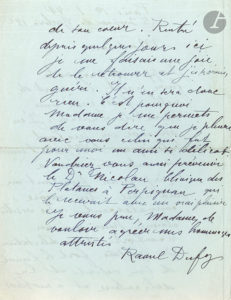 de son cœur. Rentré
depuis quelques jours ici
je me faisais une joie
de le retrouver et
guère. Il n'en sera donc
rien. C'est pourquoi
Madame je me permets
de vous dire que je pleure
avec vous celui qui fut
pour moi un ami si délicat
Voudriez vous aussi prévenir
le Dr Nicolau clinique des
Platanes à Perpignan qui
le recevrait avec un vrai plaisir
je vous prie, Madame, de
vouloir agréer mes hommages
attristés
Raoul Dufy